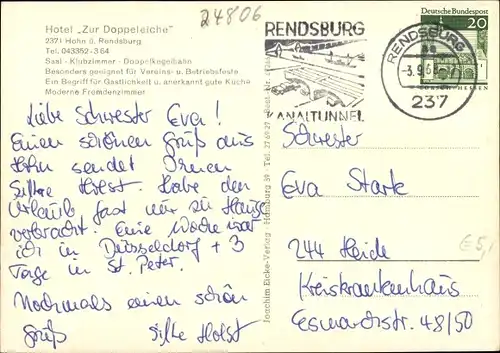 24806
Hotel „Zur Doppeleiche"
2371 Hohn ü. Rendsburg
Tel. 043352-364
Saal - Klubzimmer - Doppelkegelbahn
Besonders geeignet für Vereins- u. Betriebsfeste
Ein Begriff für Gastlichkeit u. anerkannt gute Küche
Moderne Fremdenzimmer
Liebe Schwester Eva!
Einen schönen Gruß aus
Hohn sendet Ihnen
Silke Holst. Habe den
Urlaub fast nur zu Hause
verbracht. Eine Woche war
ich in Düsseldorf + 3
Tage in St. Peter.
Nochmals einen schön
Gruß Silke Holst
Joachim Eicke-Verlag · Hamburg 39 · Tel. 27 69 29
RENDSBURG
KANALTUNNEL
RENDSBURG
-3.9.6
237
Deutsche Bundespost
20
Schwester
Eva Stark
244 Heide
Kreiskrankenhaus
Esmarchstr. 48/50
€ 5,-